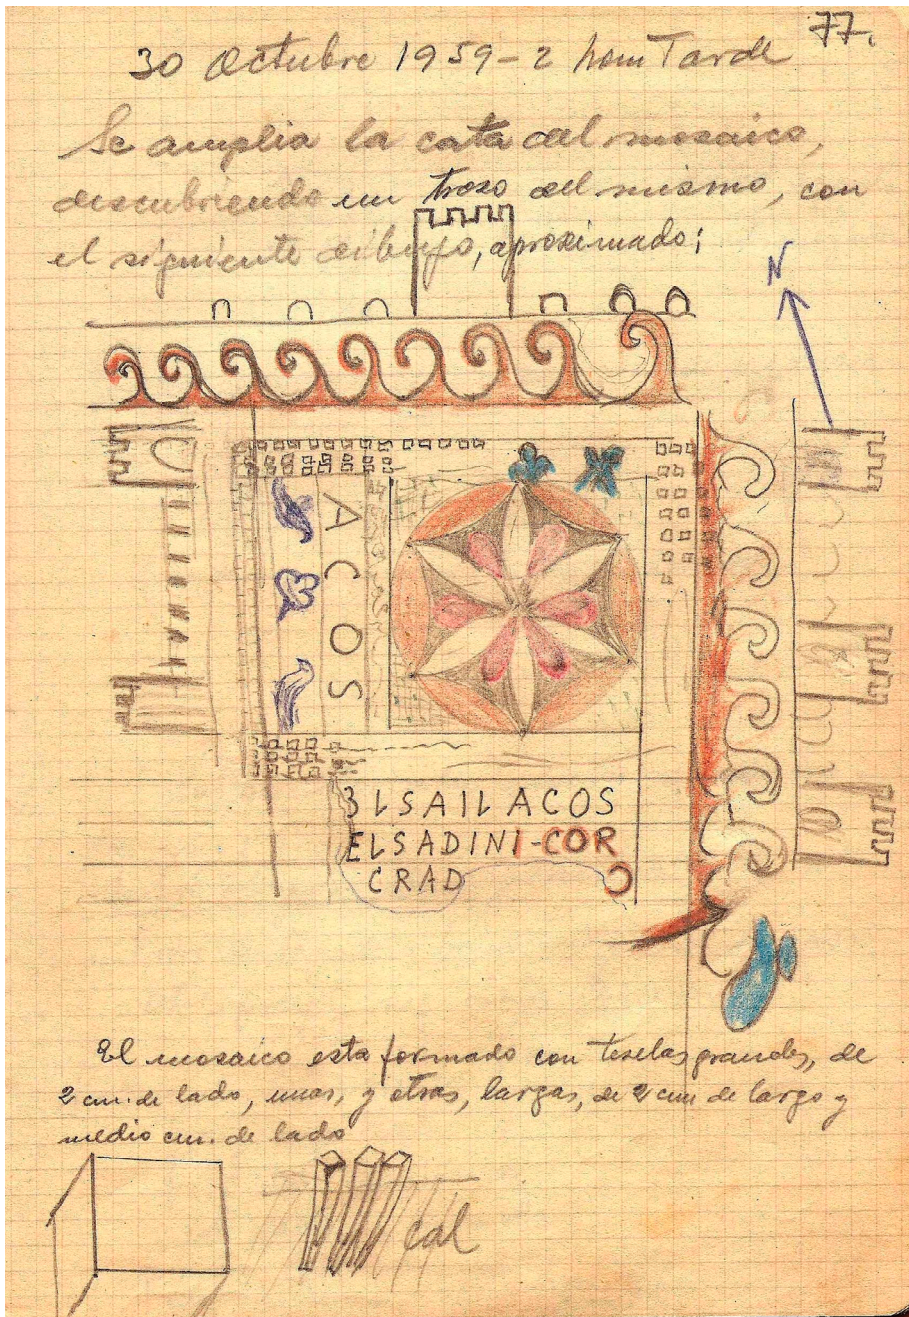 77.
30 Octubre 1959-2 hom Tarde
Se amplia la cata del mosaico,
descubriendo un troso del mismo, con
el siguiente dibujo, aproximado;
N
ACOS
3LSAILACOS
ELSADINI-COR
CRAD
El mosaico esta formado con teselas grandes, de
2 cm. de lado, unas, y otras, largas, de 2 cm de largo y
medio cm. de lado
cal